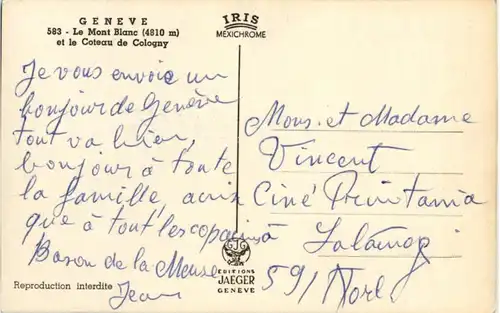 GENEVE
583 - Le Mont Blanc (4810 m)
et le Coteau de Cologny
IRIS
MEXICHROME
Je vous envoie un
bonjour de Genève
tout va bien,
bonjour à toute
la famille,
que à tout les copains
de la Meuse
Jean
Mons. et Madame
Vincent
Ciné
à
59/ Nord
EDITIONS
JAEGER
GENEVE
Reproduction interdite